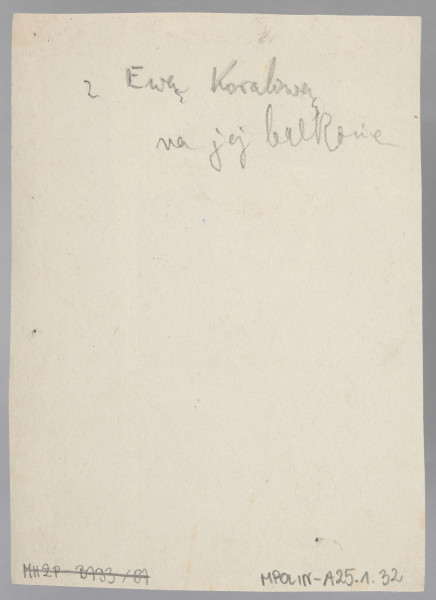 z Ewą Koralową
na jej balkonie
MHŻP - B193/61
MPOLIN-A25.1.32